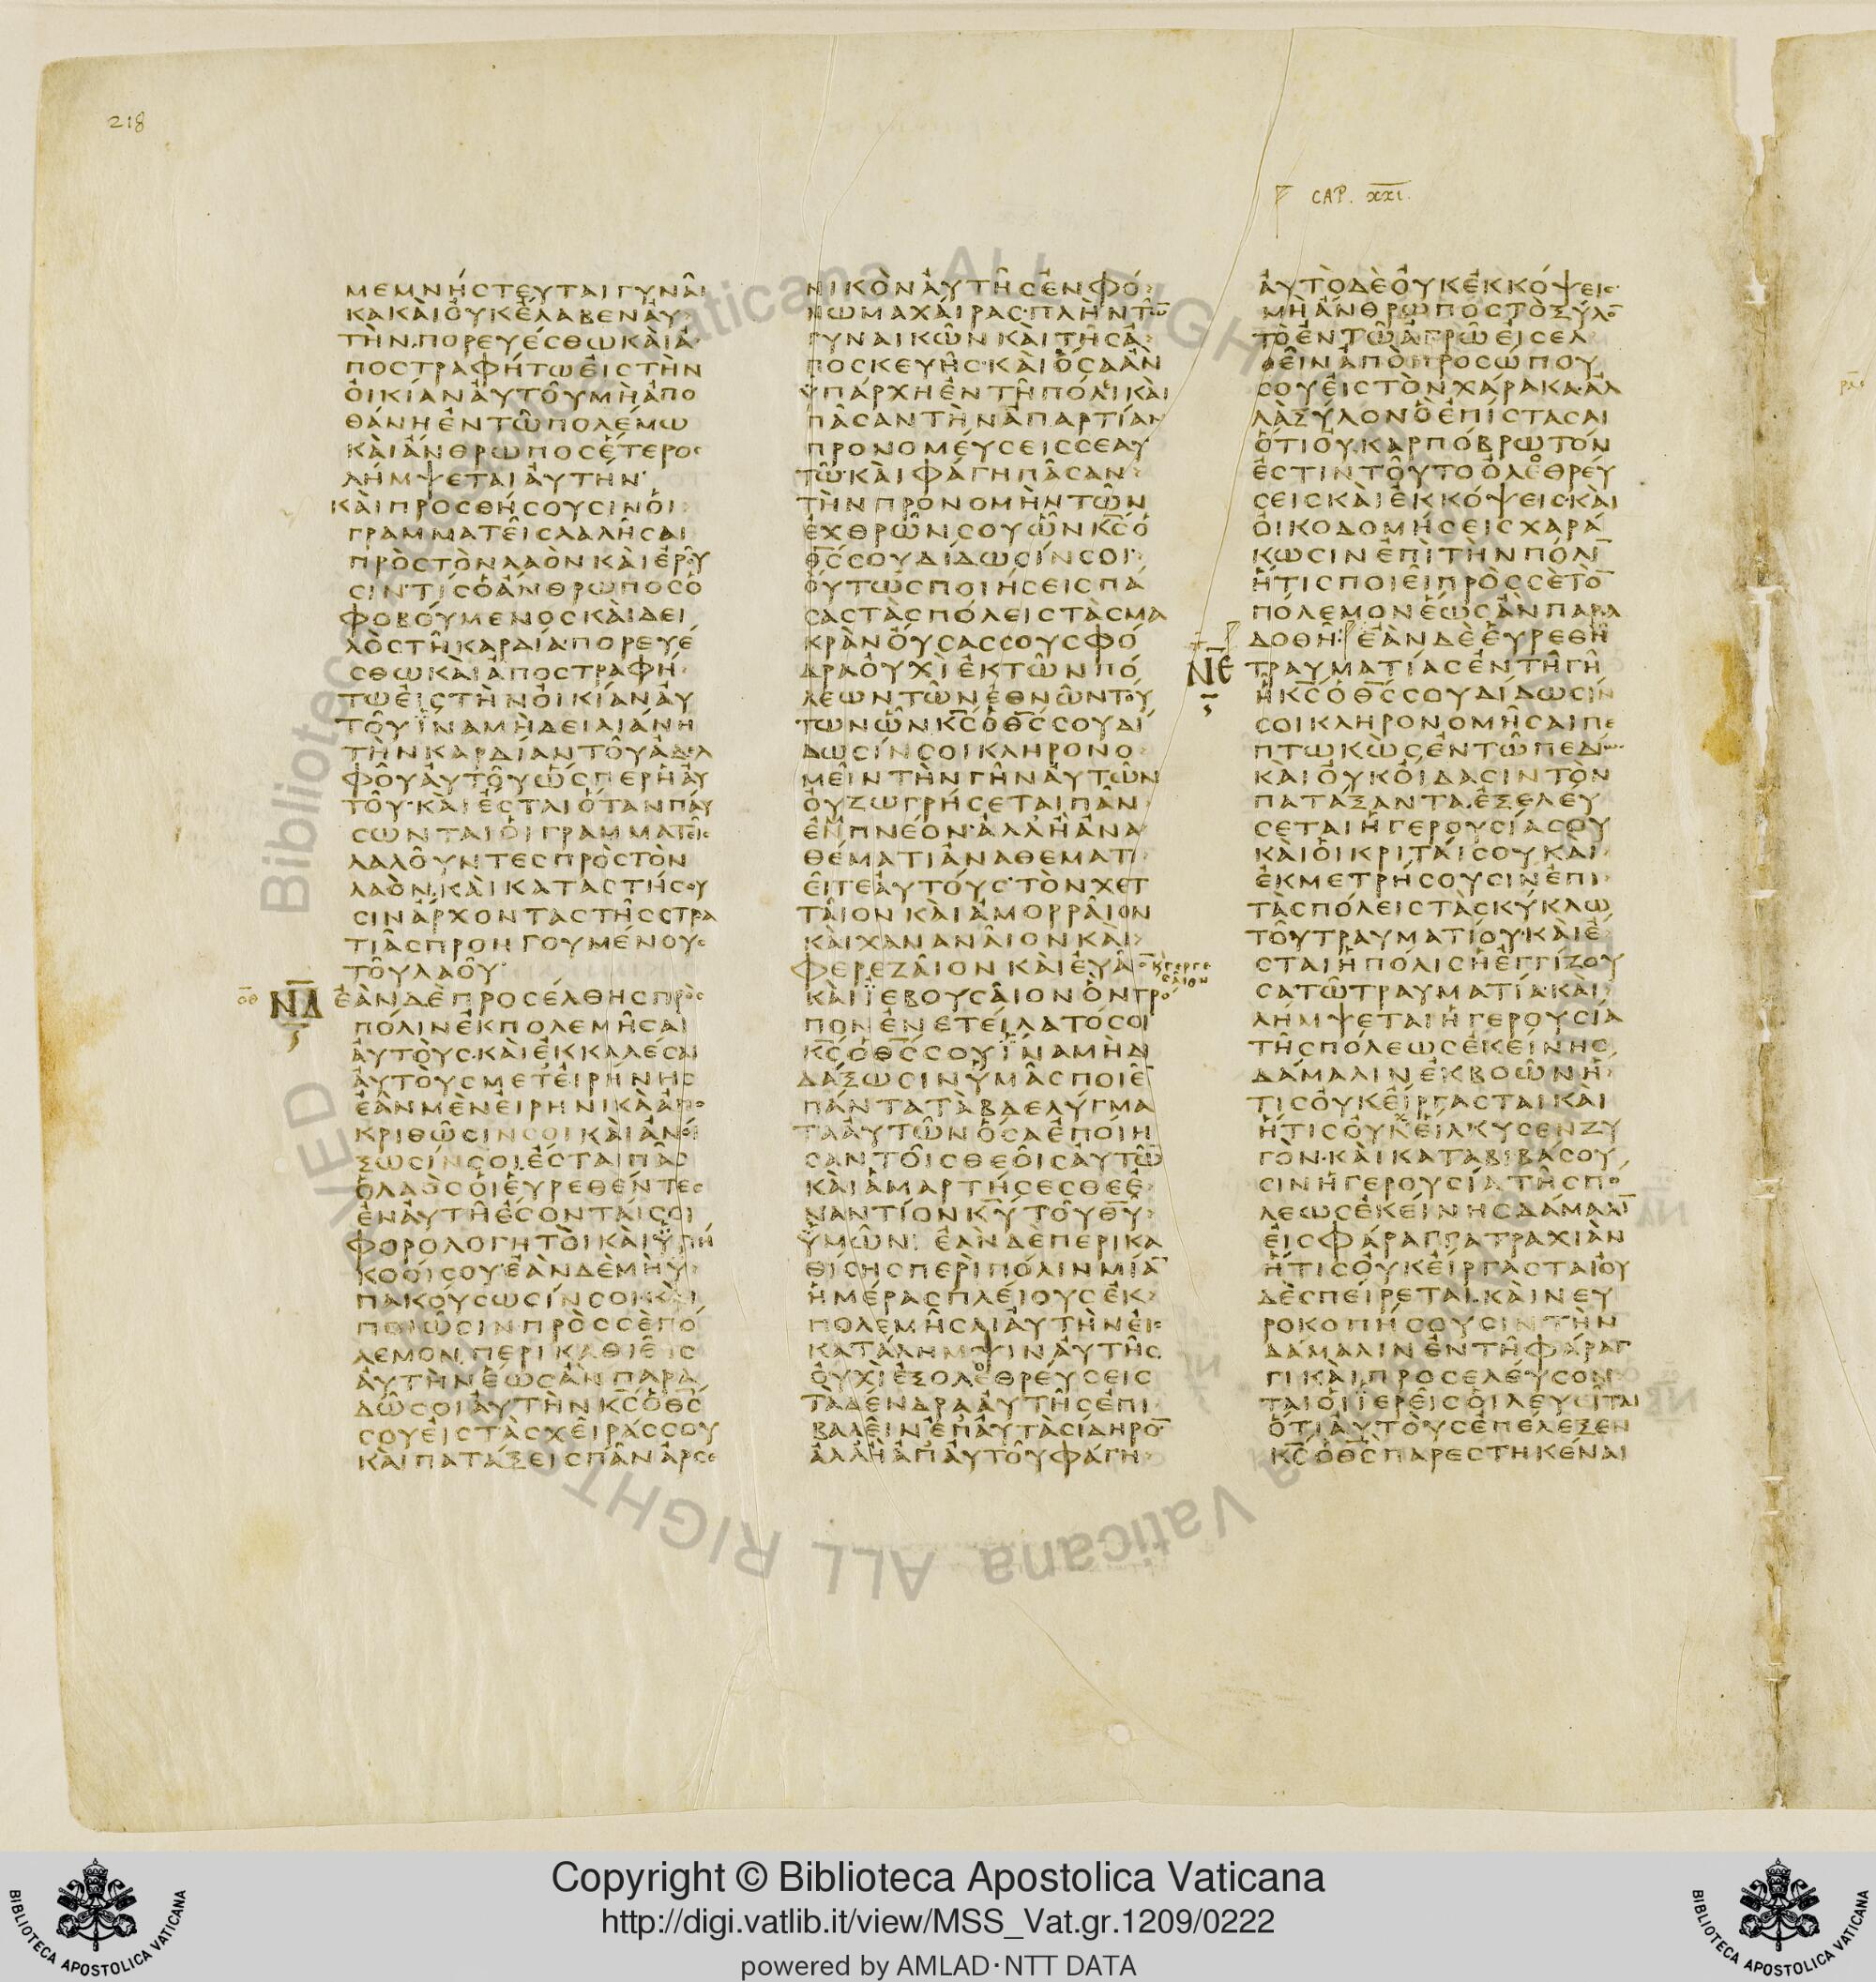 218
CAP. xxi.
ΜΕΜΝΗΣΤΕΥΤΑΙΓΥΝΑΙ
ΚΑΚΑΙΟΥΚΕΛΑΒΕΝΑΥ
ΤΗΝ·ΠΟΡΕΥΕΣΘΩΚΑΙΑ
ΠΟΣΤΡΑΦΗΤΩΕΙΣΤΗΝ
ΟΙΚΙΑΝΑΥΤΟΥΜΗΑΠΟ
ΘΑΝΗΕΝΤΩΠΟΛΕΜΩ
ΚΑΙΑΝΘΡΩΠΟΣΕΤΕΡΟΣ
ΛΗΜΨΕΤΑΙΑΥΤΗΝ·
ΚΑΙΠΡΟΣΘΗΣΟΥΣΙΝΟΙ
ΓΡΑΜΜΑΤΕΙΣΛΑΛΗΣΑΙ
ΠΡΟΣΤΟΝΛΑΟΝΚΑΙΕΡΟΥ
ΣΙΝ·ΤΙΣΟΑΝΘΡΩΠΟΣΟ
ΦΟΒΟΥΜΕΝΟΣΚΑΙΔΕΙ
ΛΟΣΤΗΚΑΡΔΙΑ·ΠΟΡΕΥΕ
ΣΘΩΚΑΙΑΠΟΣΤΡΑΦΗ
ΤΩΕΙΣΤΗΝΟΙΚΙΑΝΑΥ
ΤΟΥΪΝΑΜΗΔΕΙΛΙΑΝΗ
ΤΗΝΚΑΡΔΙΑΝΤΟΥΑΔΕΛ
ΦΟΥΑΥΤΟΥΩΣΠΕΡΗΑΥ
ΤΟΥ·ΚΑΙΕΣΤΑΙΟΤΑΝΠΑΥ
ΣΩΝΤΑΙΟΙΓΡΑΜΜΑΤΕΙΣ
ΛΑΛΟΥΝΤΕΣΠΡΟΣΤΟΝ
ΛΑΟΝ·ΚΑΙΚΑΤΑΣΤΗΣΟΥ
ΣΙΝΑΡΧΟΝΤΑΣΤΗΣΣΤΡΑ
ΤΙΑΣΠΡΟΗΓΟΥΜΕΝΟΥΣ
ΤΟΥΛΑΟΥ·
ΝΔ ΕΑΝΔΕΠΡΟΣΕΛΘΗΣΠΡΟΣ
ΠΟΛΙΝΕΚΠΟΛΕΜΗΣΑΙ
ΑΥΤΟΥΣ·ΚΑΙΕΚΚΑΛΕΣΑΙ
ΑΥΤΟΥΣΜΕΤΕΙΡΗΝΗΣ
ΕΑΝΜΕΝΕΙΡΗΝΙΚΑΑΠΟ
ΚΡΙΘΩΣΙΝΣΟΙΚΑΙΑΝΟΙ
ΞΩΣΙΝΣΟΙ·ΕΣΤΑΙΠΑΣ
ΟΛΑΟΣΟΙΕΥΡΕΘΕΝΤΕΣ
ΕΝΑΥΤΗΕΣΟΝΤΑΙΣΟΙ
ΦΟΡΟΛΟΓΗΤΟΙΚΑΙΫΠΗ
ΚΟΟΙΣΟΥ·ΕΑΝΔΕΜΗΥ
ΠΑΚΟΥΣΩΣΙΝΣΟΙΚΑΙ
ΠΟΙΩΣΙΝΠΡΟΣΣΕΠΟ
ΛΕΜΟΝ·ΠΕΡΙΚΑΘΙΕΙΣ
ΑΥΤΗΝΕΩΣΑΝΠΑΡΑ
ΔΩΣΟΙΑΥΤΗΝΚΣΟΘΣ
ΣΟΥΕΙΣΤΑΣΧΕΙΡΑΣΣΟΥ
ΚΑΙΠΑΤΑΞΕΙΣΠΑΝΑΡΣΕ
ΝΙΚΟΝΑΥΤΗΣΕΝΦΟ
ΝΩΜΑΧΑΙΡΑΣ·ΠΛΗΝΤΩ̅
ΓΥΝΑΙΚΩΝΚΑΙΤΗΣΑ
ΠΟΣΚΕΥΗΣ·ΚΑΙΟΣΑΑΝ
ΫΠΑΡΧΗΕΝΤΗΠΟΛΕΙΚΑΙ
ΠΑΣΑΝΤΗΝΑΠΑΡΤΙΑΝ
ΠΡΟΝΟΜΕΥΣΕΙΣΣΕΑΥ
ΤΩ·ΚΑΙΦΑΓΗΠΑΣΑΝ
ΤΗΝΠΡΟΝΟΜΗΝΤΩΝ
ΕΧΘΡΩΝΣΟΥΩΝΚΣΟ
ΘΣΣΟΥΔΙΔΩΣΙΝΣΟΙ·
ΟΥΤΩΣΠΟΙΗΣΕΙΣΠΑ
ΣΑΣΤΑΣΠΟΛΕΙΣΤΑΣΜΑ
ΚΡΑΝΟΥΣΑΣΣΟΥΣΦΟ
ΔΡΑΟΥΧΙΕΚΤΩΝΠΟ
ΛΕΩΝΤΩΝΕΘΝΩΝΤΟΥ
ΤΩΝΩΝΚΣΟΘΣΣΟΥΔΙ
ΔΩΣΙΝΣΟΙΚΛΗΡΟΝΟ
ΜΕΙΝΤΗΝΓΗΝΑΥΤΩΝ
ΟΥΖΩΓΡΗΣΕΤΑΙΠΑΝ
ΕΝΠΝΕΟΝ·ΑΛΛΗΑΝΑ
ΘΕΜΑΤΙΑΝΑΘΕΜΑΤΙ
ΕΙΤΕΑΥΤΟΥΣ·ΤΟΝΧΕΤ
ΤΑΙΟΝΚΑΙΑΜΟΡΡΑΙΟΝ
ΚΑΙΧΑΝΑΝΑΙΟΝΚΑΙ
ΦΕΡΕΖΑΙΟΝΚΑΙΕΥΑΙΟ̅ κ γεργε
σαιον
ΚΑΙΪΕΒΟΥΣΑΙΟΝΟΝΤΡΟ
ΠΟΝΕΝΕΤΕΙΛΑΤΟΣΟΙ
ΚΣΟΘΣΣΟΥΪΝΑΜΗΔΙ
ΔΑΞΩΣΙΝΫΜΑΣΠΟΙΕΙ̅
ΠΑΝΤΑΤΑΒΔΕΛΥΓΜΑ
ΤΑΑΥΤΩΝΟΣΑΕΠΟΙΗ
ΣΑΝΤΟΙΣΘΕΟΙΣΑΥΤΩ̅
ΚΑΙΑΜΑΡΤΗΣΕΣΘΕΕ
ΝΑΝΤΙΟΝΚΥΤΟΥΘΥ
ΫΜΩΝ: ΕΑΝΔΕΠΕΡΙΚΑ
ΘΙΣΗΣΠΕΡΙΠΟΛΙΝΜΙΑ̅
ΗΜΕΡΑΣΠΛΕΙΟΥΣΕΚ
ΠΟΛΕΜΗΣΑΙΑΥΤΗΝΕΙΣ
ΚΑΤΑΛΗΜΨΙΝΑΥΤΗΣ
ΟΥΧΙΕΞΟΛΕΘΡΕΥΣΕΙΣ
ΤΑΔΕΝΔΡΑΑΥΤΗΣΕΠΙ
ΒΑΛΕΙΝΕΠΑΥΤΑΣΙΔΗΡΟ̅
ΑΛΛΗΑΠΑΥΤΟΥΦΑΓΗ
ΑΥΤΟΔΕΟΥΚΕΚΚΟΨΕΙΣ
ΜΗΑΝΘΡΩΠΟΣΤΟΞΥΛΟ̅
ΤΟΕΝΤΩΑΓΡΩΕΙΣΕΛ
ΘΕΙΝΑΠΟΠΡΟΣΩΠΟΥ
ΣΟΥΕΙΣΤΟΝΧΑΡΑΚΑ·ΑΛ
ΛΑΞΥΛΟΝΟΕΠΙΣΤΑΣΑΙ
ΟΤΙΟΥΚΑΡΠΟΒΡΩΤΟΝ
ΕΣΤΙΝΤΟΥΤΟΟΛΕΘΡΕΥ
ΣΕΙΣΚΑΙΕΚΚΟΨΕΙΣΚΑΙ
ΟΙΚΟΔΟΜΗΣΕΙΣΧΑΡΑ
ΚΩΣΙΝΕΠΙΤΗΝΠΟΛΙ̅
ΗΤΙΣΠΟΙΕΙΠΡΟΣΣΕΤΟ̅
ΠΟΛΕΜΟΝΕΩΣΑΝΠΑΡΑ
ΔΟΘΗ: ΕΑΝΔΕΕΥΡΕΘΗ
ΝΕ ΤΡΑΥΜΑΤΙΑΣΕΝΤΗΓΗ
ΗΚΣΟΘΣΣΟΥΔΙΔΩΣΙΝ
ΣΟΙΚΛΗΡΟΝΟΜΗΣΑΙΠΕ
ΠΤΩΚΩΣΕΝΤΩΠΕΔΙΩ
ΚΑΙΟΥΚΟΙΔΑΣΙΝΤΟΝ
ΠΑΤΑΞΑΝΤΑ·ΕΞΕΛΕΥ
ΣΕΤΑΙΗΓΕΡΟΥΣΙΑΣΟΥ
ΚΑΙΟΙΚΡΙΤΑΙΣΟΥΚΑΙ
ΕΚΜΕΤΡΗΣΟΥΣΙΝΕΠΙ
ΤΑΣΠΟΛΕΙΣΤΑΣΚΥΚΛΩ
ΤΟΥΤΡΑΥΜΑΤΙΟΥ·ΚΑΙΕ
ΣΤΑΙΗΠΟΛΙΣΗΕΓΓΙΖΟΥ
ΣΑΤΩΤΡΑΥΜΑΤΙΑ·ΚΑΙ
ΛΗΜΨΕΤΑΙΗΓΕΡΟΥΣΙΑ
ΤΗΣΠΟΛΕΩΣΕΚΕΙΝΗΣ
ΔΑΜΑΛΙΝΕΚΒΟΩΝΗ
ΤΙΣΟΥΚΕΙΡΓΑΣΤΑΙΚΑΙ
ΗΤΙΣΟΥΧΕΙΛΚΥΣΕΝΖΥ
ΓΟΝ·ΚΑΙΚΑΤΑΒΙΒΑΣΟΥ
ΣΙΝΗΓΕΡΟΥΣΙΑΤΗΣΠΟ
ΛΕΩΣΕΚΕΙΝΗΣΔΑΜΑΛΙ̅
ΕΙΣΦΑΡΑΓΓΑΤΡΑΧΙΑΝ
ΗΤΙΣΟΥΚΕΙΡΓΑΣΤΑΙΟΥ
ΔΕΣΠΕΙΡΕΤΑΙ·ΚΑΙΝΕΥ
ΡΟΚΟΠΗΣΟΥΣΙΝΤΗΝ
ΔΑΜΑΛΙΝΕΝΤΗΦΑΡΑΓ
ΓΙΚΑΙΠΡΟΣΕΛΕΥΣΟΝ
ΤΑΙΟΙΪΕΡΕΙΣΟΙΛΕΥΕΙΤΑΙ
ΟΤΙΑΥΤΟΥΣΕΠΕΛΕΞΕΝ
ΚΣΟΘΣΠΑΡΕΣΤΗΚΕΝΑΙ
Copyright © Biblioteca Apostolica Vaticana
http://digi.vatlib.it/view/MSS_Vat.gr.1209/0222
powered by AMLAD·NTT DATA
BIBLIOTECA APOSTOLICA VATICANA
BIBLIOTECA APOSTOLICA VATICANA